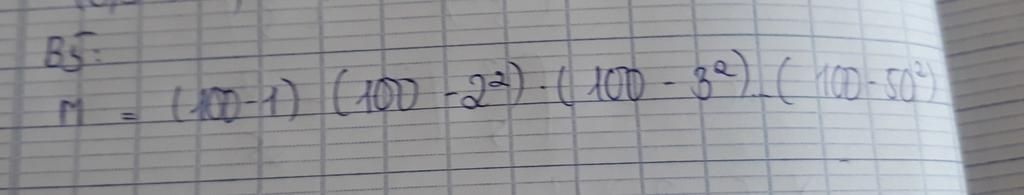 B5:
M = (100-1) (100-2²).(100-3²)..(100-50²)